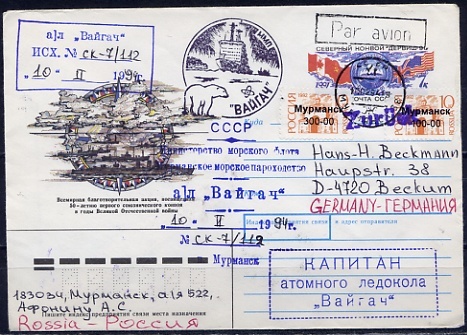 а/л „Вайгач"
ИСХ. № СК-7/112
„10" II 1994г.
ММП
"ВАЙГАЧ"
Par avion
СЕВЕРНЫЙ КОНВОЙ "ДЕРВИШ-91"
ПОЧТА СССР
Мурманск
300-00
Мурманск
300-00
РОССИЯ
10
ROSSIJA
Zurück
Куда
СССР
Министерство морского флота
Мурманское морское пароходство
а/л „Вайгач"
„10" II 1994г.
№ СК-7/112
Мурманск
Hans-H. Beckmann
Hauptstr. 38
D-4720 Beckum
GERMANY-ГЕРМАНИЯ
Всемирная благотворительная акция, посвященная
50-летию первого союзнического конвоя
в годы Великой Отечественной войны
индекс предприятия связи и адрес отправителя
КАПИТАН
атомного ледокола
„Вайгач"
183034, Мурманск, а/я 522,
Афонину А.С.
Пишите индекс предприятия связи места назначения
Rossia - Россия